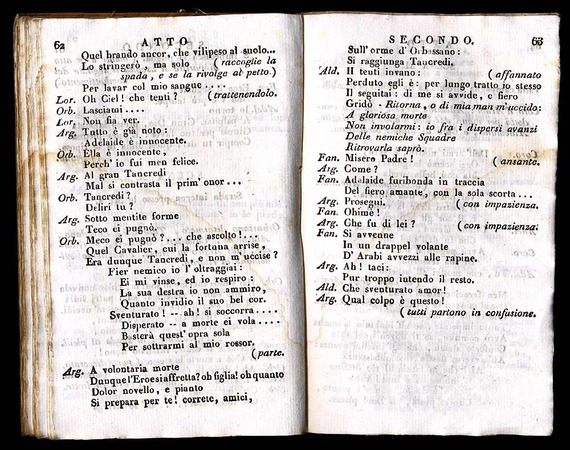 62 ATTO
Quel brando ancor, che vilipeso al suolo...
Lo stringerò, ma solo (raccoglie la
spada, e se la rivolge al petto.)
Per lavar col mio sangue ....
Lor. Oh Ciel! che tenti? (trattenendolo.
Orb. Lasciatmi ....
Lor. Non fia ver.
Arg. Tutto è già noto:
Adelaide è innocente.
Orb. Ella è innocente,
Perch' io fui men felice.
Arg. Al gran Tancredi
Mal si contrasta il prim' onor...
Orb. Tancredi?
Deliri tu?
Arg. Sotto mentite forme
Teco ei pugnò.
Orb. Meco ei pugnò?... che ascolto!...
Quel Cavalier, cui la fortuna arrise,
Era dunque Tancredi, e non m'uccise?
Fier nemico io l' oltraggiai:
Ei mi vinse, ed io respiro:
La sua destra io non ammiro,
Quanto invidio il suo bel cor.
Sventurato! -- ah! si soccorra ....
Disperato -- a morte ei vola ....
Basterà quest' opra sola
Per sottrarmi al mio rossor.
(parte.
Arg. A volontaria morte
Dunque l'Eroe si affretta? oh figlia! oh quanto
Dolor novello, e pianto
Si prepara per te! correte, amici,
SECONDO. 63
Sull' orme d' Orbassano:
Si raggiunga Tancredi.
Ald. Il tenti invano: (affannato
Perduto egli è: per lungo tratto io stesso
Il seguitai: di me si avvide, e fiero
Gridò - Ritorna, o di mia man m'uccido:
A gloriosa morte
Non involarmi: io fra i dispersi avanzi
Delle nemiche Squadre
Ritrovarla saprò.
Fan. Misero Padre! (ansante.
Arg. Come?
Fan. Adelaide furibonda in traccia
Del fiero amante, con la sola scorta...
Arg. Prosegui. (con impazienza.
Fan. Ohimè!
Arg. Che fu di lei? (con impazienza.
Fan. Si avvenne
In un drappel volante
D' Arabi avvezzi alle rapine.
Arg. Ah! taci:
Pur troppo intendo il resto.
Ald. Che sventurato amor!
Arg. Qual colpo è questo!
(tutti partono in confusione.